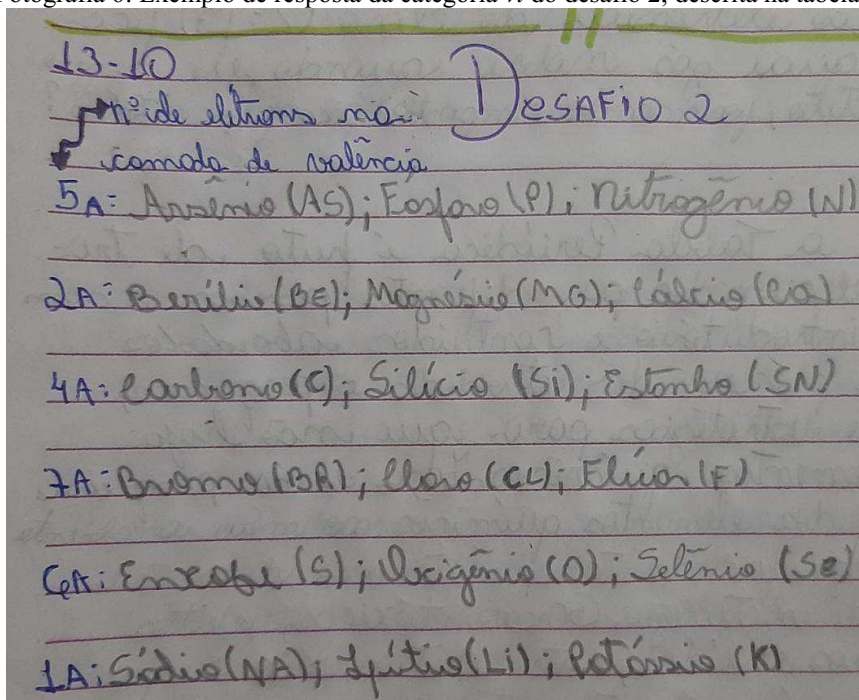 Fotografia 6: Exemplo de resposta da categoria VI do desafio 2, descrita na tabela
13-10
DESAFIO 2
nº de elétrons na
camada de valência
5A: Arsênio (AS); Fosforo (P); nitrogênio (N)
2A: Berílio (BE); Magnésio (MG); Cálcio (CA)
4A: Carbono (C); Silício (Si); Estanho (SN)
7A: Bromo (BR); Cloro (CL); Flúor (F)
6A: Enxofre (S); Oxigênio (O); Selênio (Se)
1A: Sódio (NA); Lítio (Li); Potássio (K)